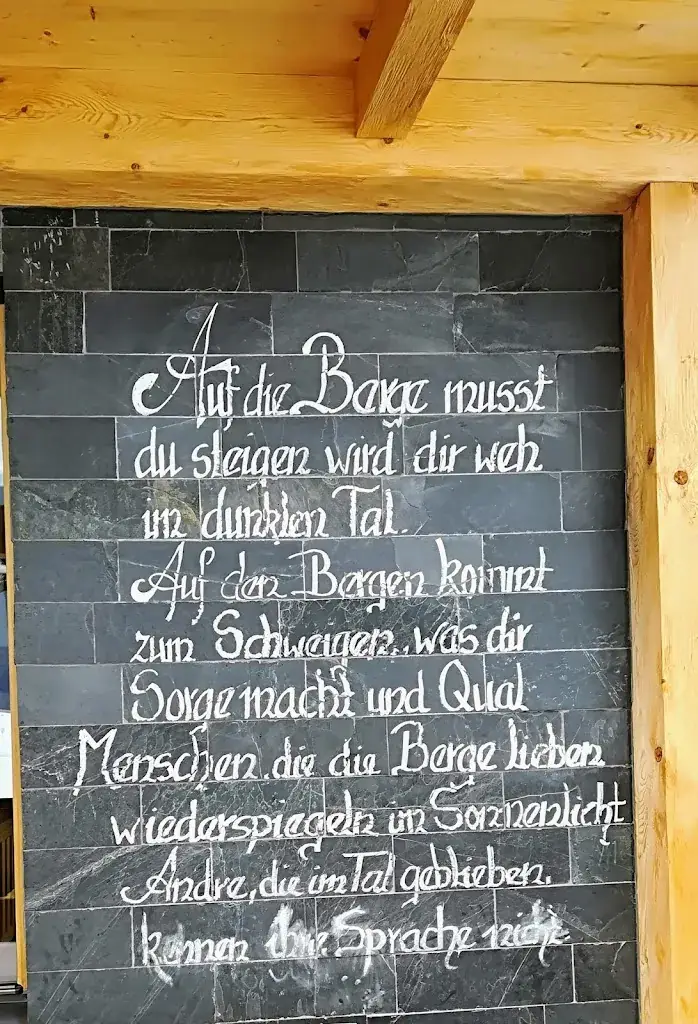 Auf die Berge musst
du steigen wird dir weh
im dunklen Tal.
Auf den Bergen kommt
zum Schweigen, was dir
Sorge macht und Qual
Menschen, die die Berge lieben
wiederspiegeln im Sonnenlicht
Andre, die im Tal geblieben,
kennen ihre Sprache nicht